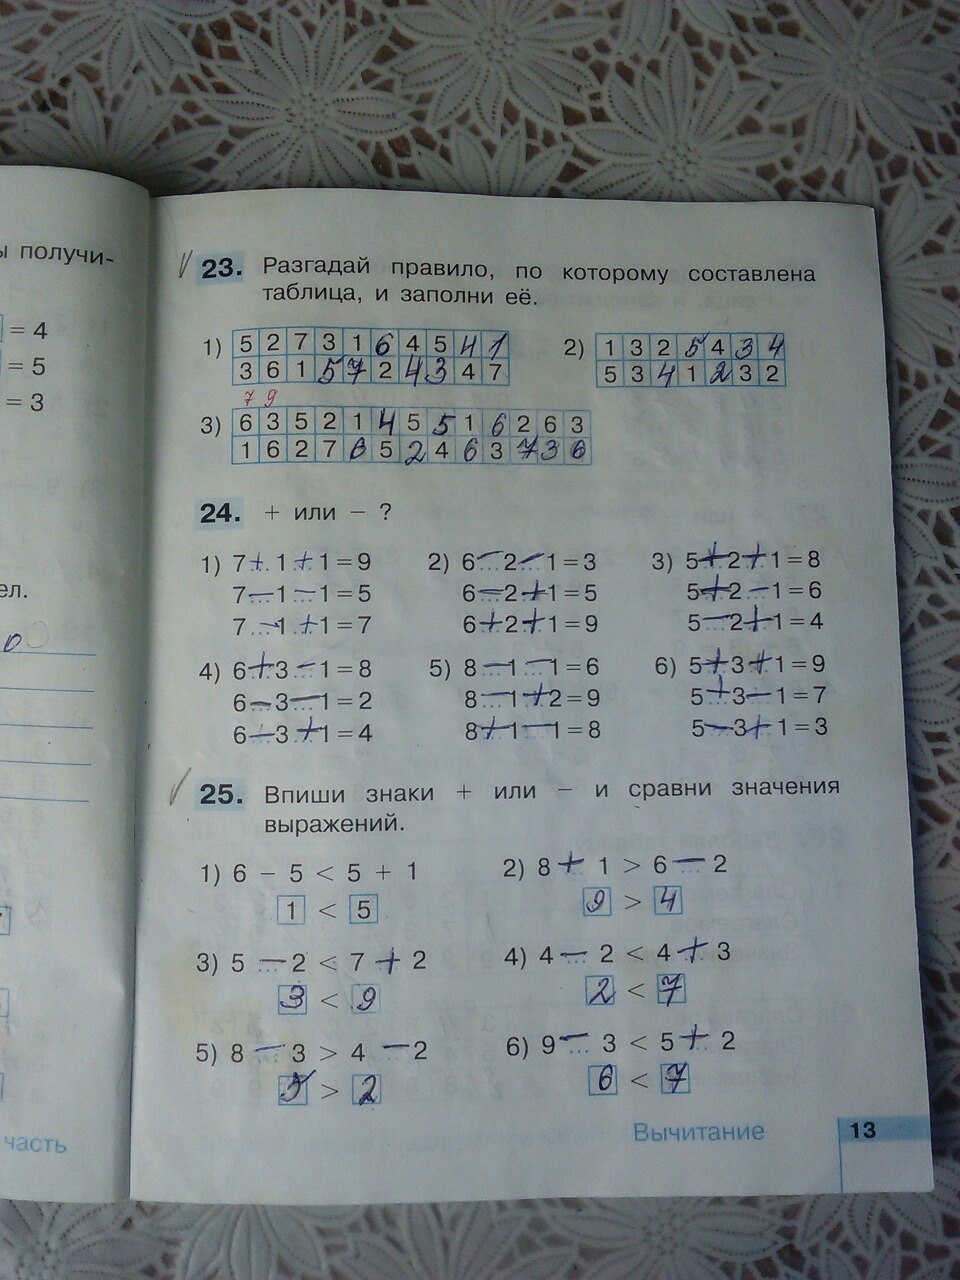 ы получи-
= 4
= 5
= 3
ел.
часть
23. Разгадай правило, по которому составлена
таблица, и заполни её.
1) 5 2 7 3 1 6 4 5 4 1
3 6 1 5 7 2 4 3 4 7
2) 1 3 2 5 4 3 4
5 3 4 1 2 3 2
7 9
3) 6 3 5 2 1 4 5 5 1 6 2 6 3
1 6 2 7 6 5 2 4 6 3 7 3 6
24. + или – ?
1) 7 + 1 + 1 = 9
7 – 1 – 1 = 5
7 – 1 + 1 = 7
2) 6 – 2 – 1 = 3
6 – 2 + 1 = 5
6 + 2 + 1 = 9
3) 5 + 2 + 1 = 8
5 + 2 – 1 = 6
5 – 2 + 1 = 4
4) 6 + 3 – 1 = 8
6 – 3 – 1 = 2
6 – 3 + 1 = 4
5) 8 – 1 – 1 = 6
8 – 1 + 2 = 9
8 + 1 – 1 = 8
6) 5 + 3 + 1 = 9
5 + 3 – 1 = 7
5 – 3 + 1 = 3
25. Впиши знаки + или – и сравни значения
выражений.
1) 6 – 5 < 5 + 1
1 < 5
2) 8 + 1 > 6 – 2
9 > 4
3) 5 – 2 < 7 + 2
3 < 9
4) 4 – 2 < 4 + 3
2 < 7
5) 8 – 3 > 4 – 2
5 > 2
6) 9 – 3 < 5 + 2
6 < 7
Вычитание 13